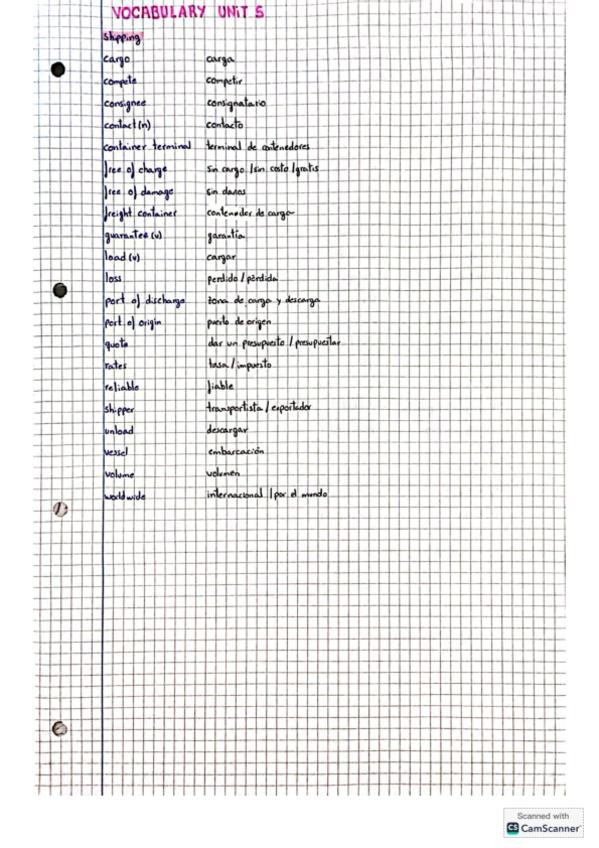 VOCABULARY UNIT 5
Shipping
cargo carga
compete competir
consignee consignatario
contact (n) contacto
container terminal terminal de contenedores
free of charge sin cargo / sin costo / gratis
free of damage sin daños
freight container contenedor de carga
guarantee (v) garantía
load (v) cargar
loss perdido / pérdida
port of discharge zona de carga y descarga
port of origin puerto de origen
quote dar un presupuesto / presupuestar
rates tasa / impuesto
reliable fiable
shipper transportista / exportador
unload descargar
vessel embarcación
volume volumen
worldwide internacional / por el mundo
Scanned with
CS CamScanner